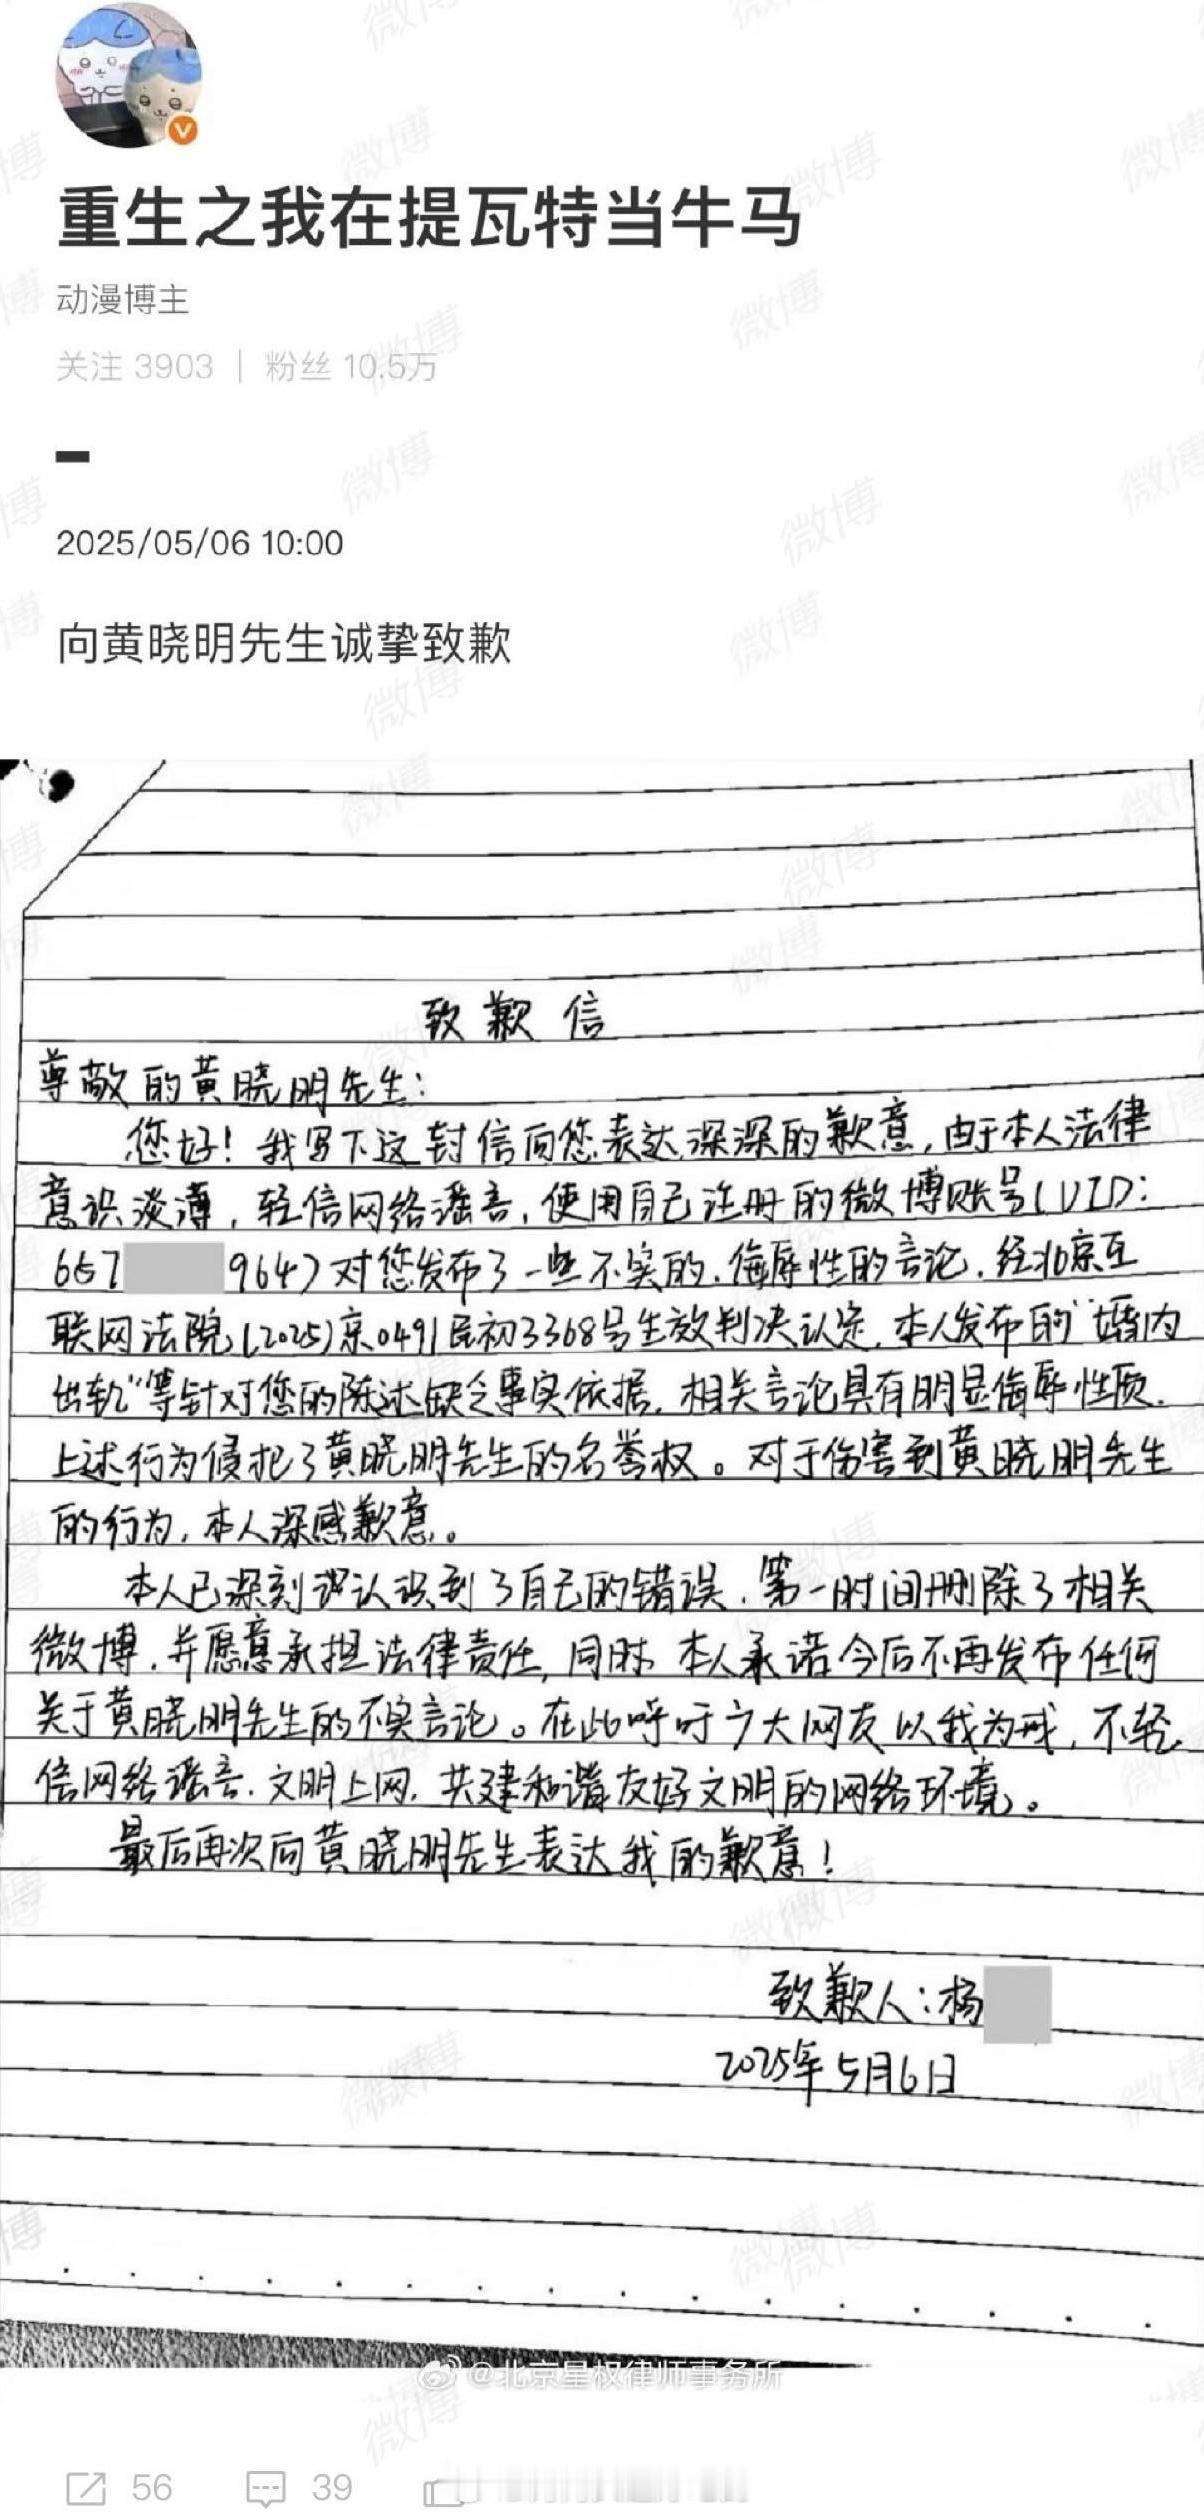 重生之我在提瓦特当牛马
动漫博主
关注 3903 | 粉丝 10.5万
2025/05/06 10:00
向黄晓明先生诚挚致歉
致歉信
尊敬的黄晓明先生：
您好！我写下这封信向您表达深深的歉意，由于本人法律
意识淡薄，轻信网络谣言，使用自己注册的微博账号(UID:
667 964)对您发布了一些不实的、侮辱性的言论，经北京互
联网法院(2025)京0491民初3368号生效判决认定，本人发布的“婚内
出轨”等针对您的陈述缺乏事实依据，相关言论具有明显侮辱性质，
上述行为侵犯了黄晓明先生的名誉权。对于伤害到黄晓明先生
的行为，本人深感歉意。
本人已深刻认识到了自己的错误，第一时间删除了相关
微博，并愿意承担法律责任，同时，本人承诺今后不再发布任何
关于黄晓明先生的不实言论。在此呼吁广大网友以我为戒，不轻
信网络谣言，文明上网，共建和谐友好文明的网络环境。
最后再次向黄晓明先生表达我的歉意！
致歉人：杨
2025年5月6日
@北京星权律师事务所
56 39
微博